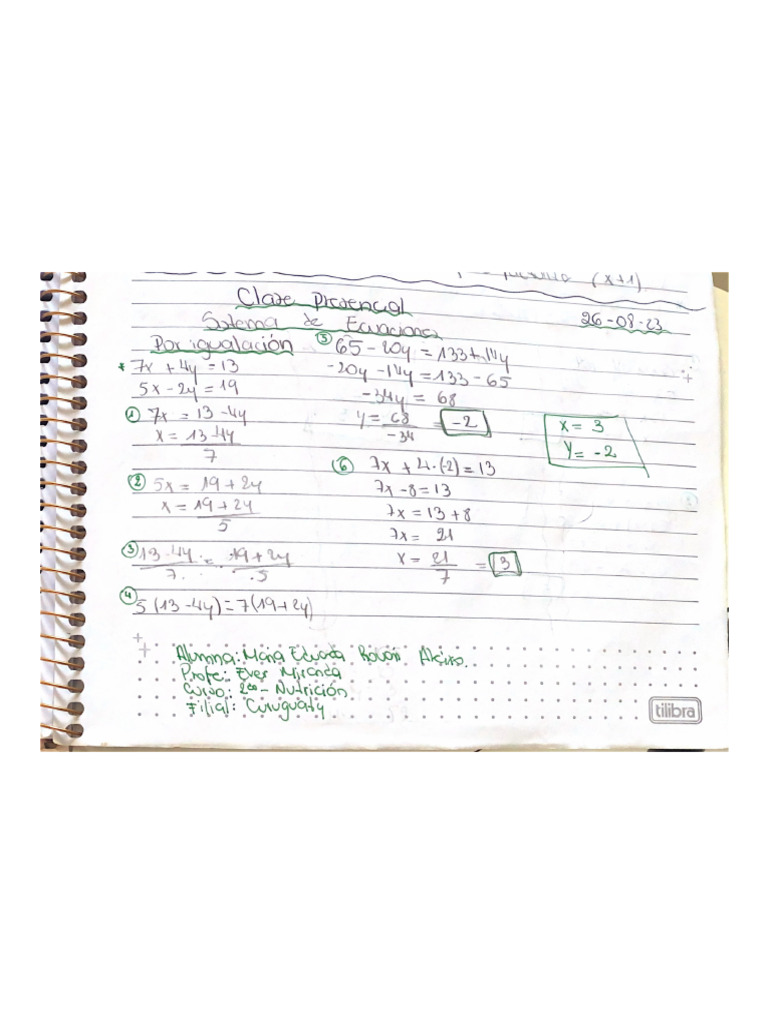 (x+1).
Clase Presencial
26-08-23
Sistema de Ecuaciones
Por igualación
* 7x + 4y = 13
5x - 2y = 19
① 7x = 13 - 4y
x = 13 - 4y
7
② 5x = 19 + 2y
x = 19 + 2y
5
③ 13 - 4y = 19 + 2y
7 5
④ 5(13 - 4y) = 7(19 + 2y)
⑤ 65 - 20y = 133 + 14y
-20y - 14y = 133 - 65
-34y = 68
y = 68 = -2
-34
⑥ 7x + 4·(-2) = 13
7x - 8 = 13
7x = 13 + 8
7x = 21
x = 21 = 3
7
x = 3
y = -2
Alumna: Maria Eduarda
Profe: Ever Miranda
Curso: 2do - Nutrición
Filial: Curuguaty
tilibra